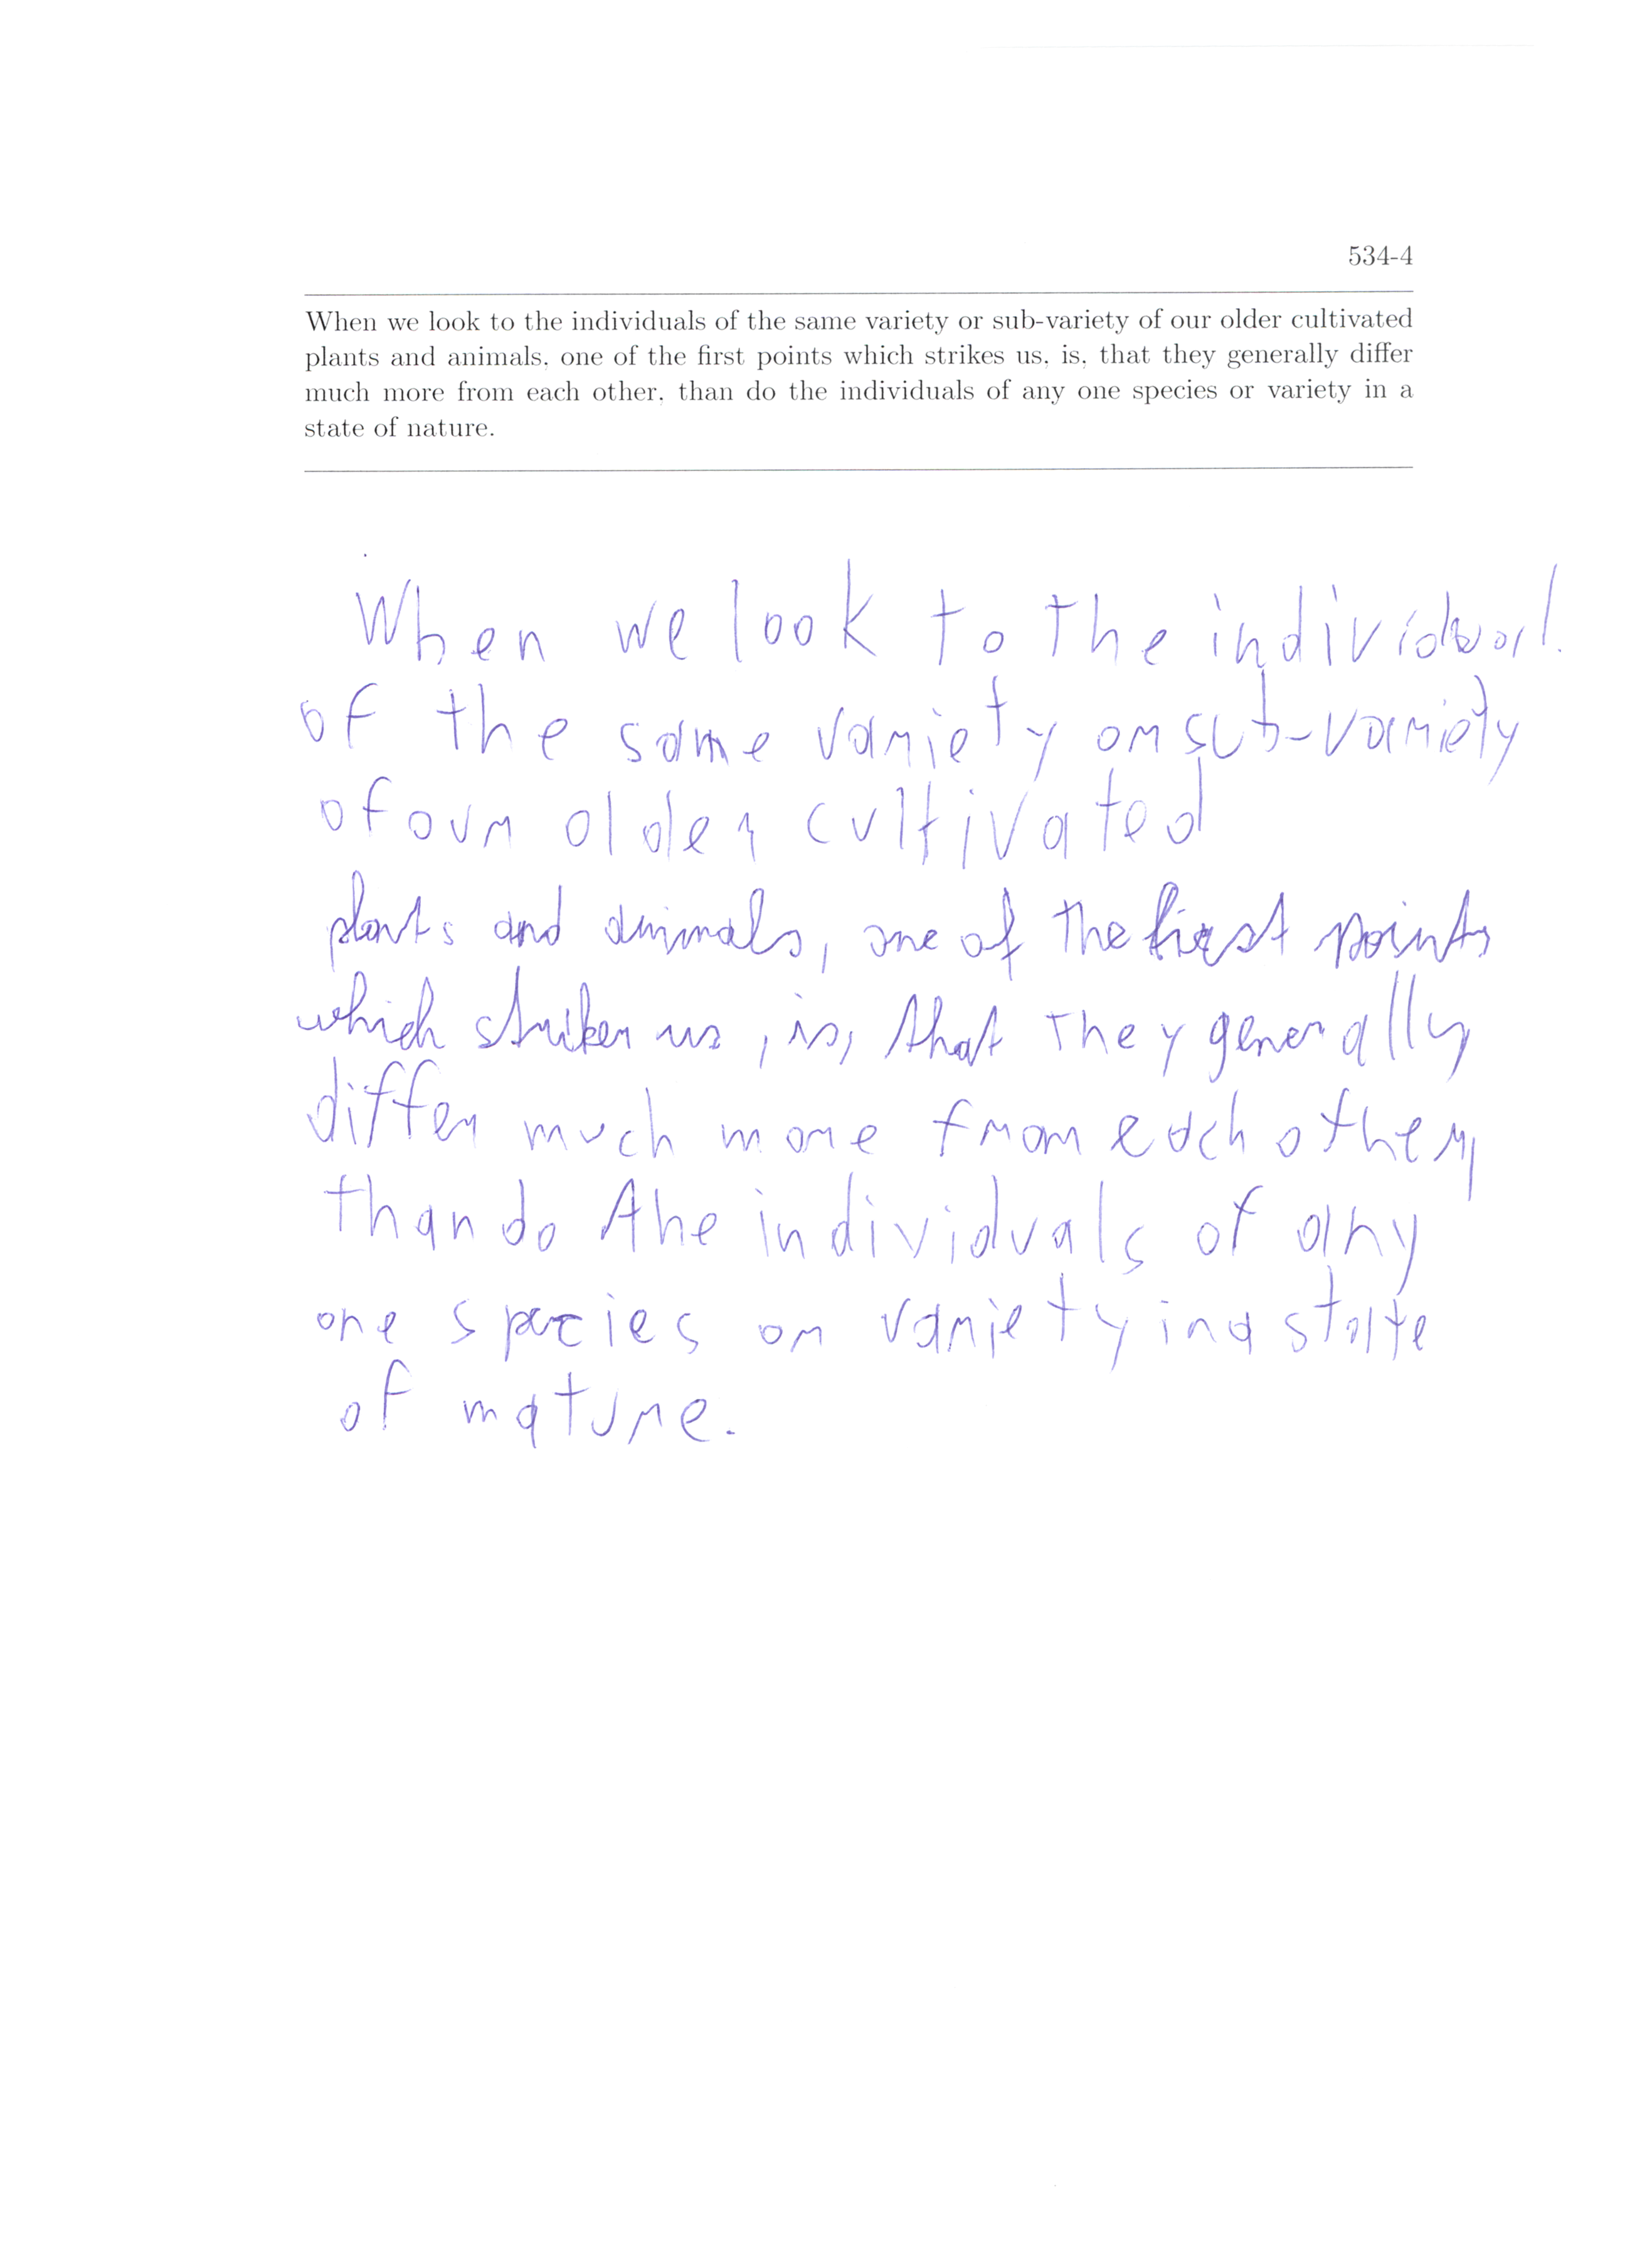 534-4
When we look to the individuals of the same variety or sub-variety of our older cultivated
plants and animals, one of the first points which strikes us, is, that they generally differ
much more from each other, than do the individuals of any one species or variety in a
state of nature.
When we look to the individual.
of the same variety or sub-variety
of our older cultivated
plants and animals, one of the first points
which strikes us, is, that they generally
differ much more from each other,
than do the individuals of any
one species or variety in a state
of nature.